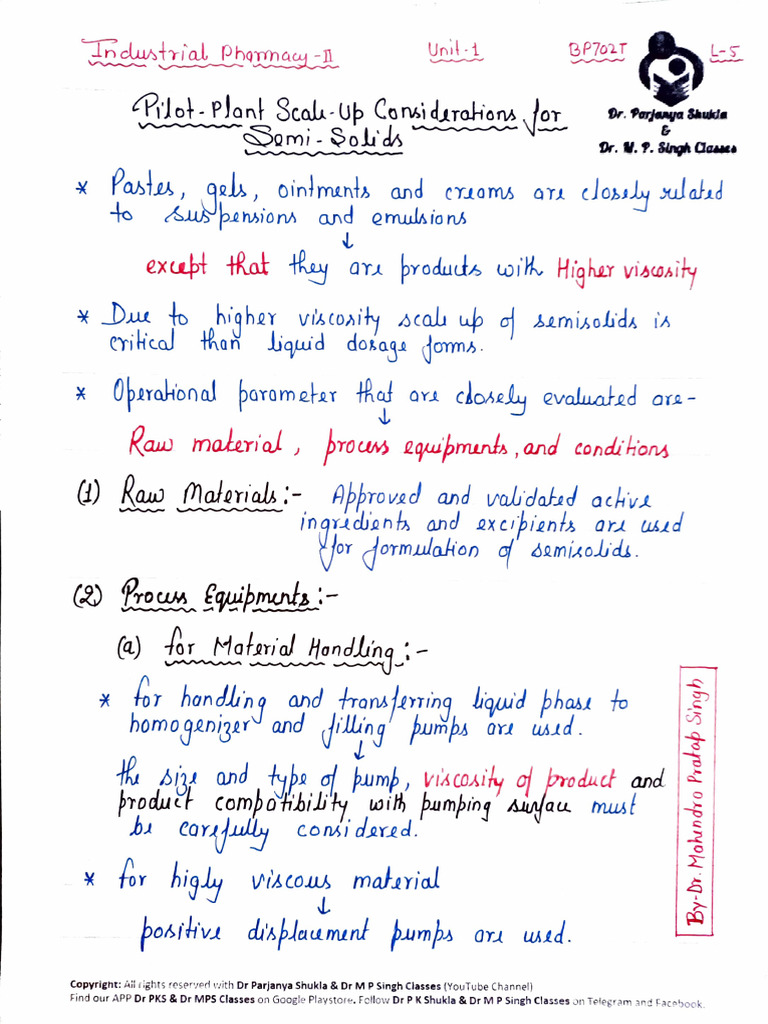 Industrial Pharmacy-II Unit-1 BP702T L-5
Dr. Parjanya Shukla
&
Dr. M. P. Singh Classes
Pilot-Plant Scale-Up Considerations for
Semi-Solids
* Pastes, gels, ointments and creams are closely related
to suspensions and emulsions
↓
except that they are products with Higher viscosity
* Due to higher viscosity scale up of semisolids is
critical than liquid dosage forms.
* Operational parameter that are closely evaluated are-
↓
Raw material, process equipments, and conditions
(1) Raw Materials:- Approved and validated active
ingredients and excipients are used
for formulation of semisolids.
(2) Process Equipments:-
(a) for Material Handling:-
* for handling and transferring liquid phase to
homogenizer and filling pumps are used.
↓
the size and type of pump, viscosity of product and
product compatibility with pumping surface must
be carefully considered.
* for higly viscous material
↓
positive displacement pumps are used.
By-Dr. Mahendra Pratap Singh
Copyright: All rights reserved with Dr Parjanya Shukla & Dr M P Singh Classes (YouTube Channel)
Find our APP Dr PKS & Dr MPS Classes on Google Playstore. Follow Dr P K Shukla & Dr M P Singh Classes on Telegram and Facebook.